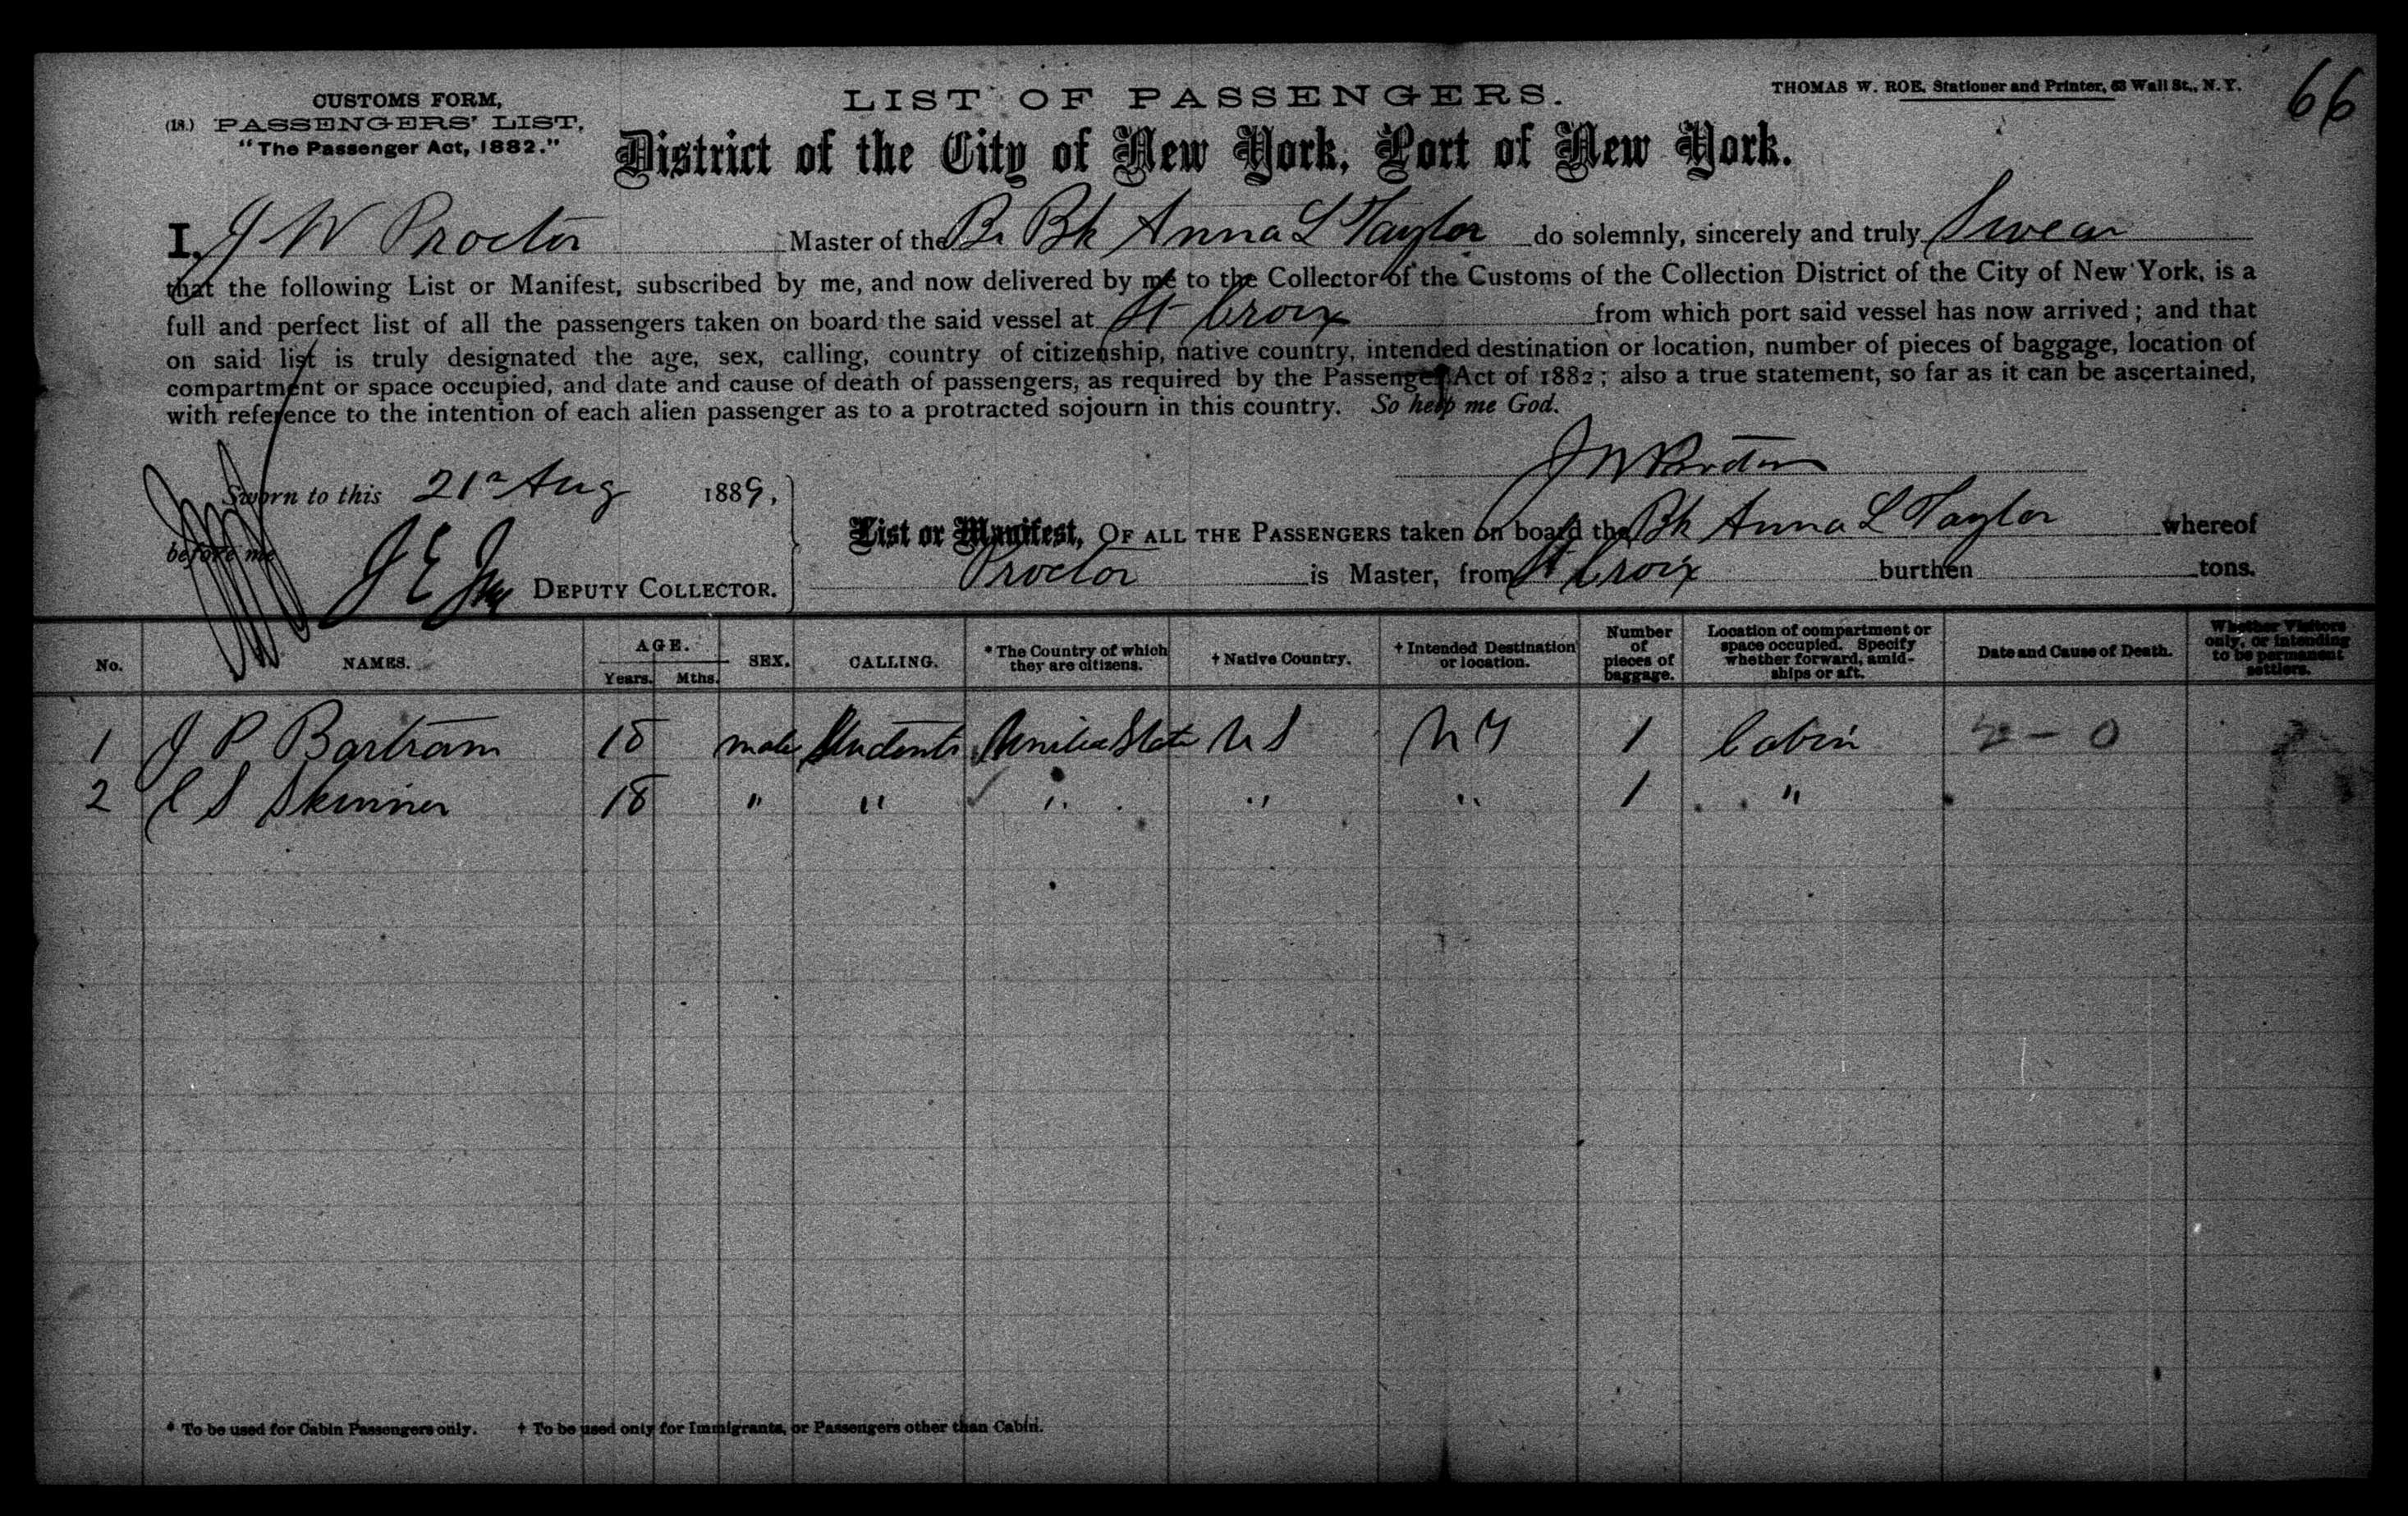 CUSTOMS FORM,
(18.) PASSENGERS' LIST,
"The Passenger Act, 1882."
LIST OF PASSENGERS.
THOMAS W. ROE, Stationer and Printer, 63 Wall St., N. Y.
66
District of the City of New York, Port of New York.
I, J W Proctor Master of the Br Bk Anna L Taylor do solemnly, sincerely and truly Swear
that the following List or Manifest, subscribed by me, and now delivered by me to the Collector of the Customs of the Collection District of the City of New York, is a
full and perfect list of all the passengers taken on board the said vessel at St Croix from which port said vessel has now arrived; and that
on said list is truly designated the age, sex, calling, country of citizenship, native country, intended destination or location, number of pieces of baggage, location of
compartment or space occupied, and date and cause of death of passengers, as required by the Passenger Act of 1882; also a true statement, so far as it can be ascertained,
with reference to the intention of each alien passenger as to a protracted sojourn in this country. So help me God.
J W Proctor
Sworn to this 21st Aug 1889,
before me
J E DEPUTY COLLECTOR.
List or Manifest, OF ALL THE PASSENGERS taken on board the Bk Anna L Taylor whereof
Proctor is Master, from St Croix burthen tons.
No. NAMES. AGE. Years. Mths. SEX. CALLING. * The Country of which they are citizens. † Native Country. † Intended Destination or location. Number of pieces of baggage. Location of compartment or space occupied. Specify whether forward, amidships or aft. Date and Cause of Death. Whether Visitors only, or intending to be permanent settlers.
1 J P Bartram 18 male Students United State U S N Y 1 Cabin 2 - 0
2 C S Skinner 18 " " " " " 1 "
* To be used for Cabin Passengers only. † To be used only for Immigrants, or Passengers other than Cabin.